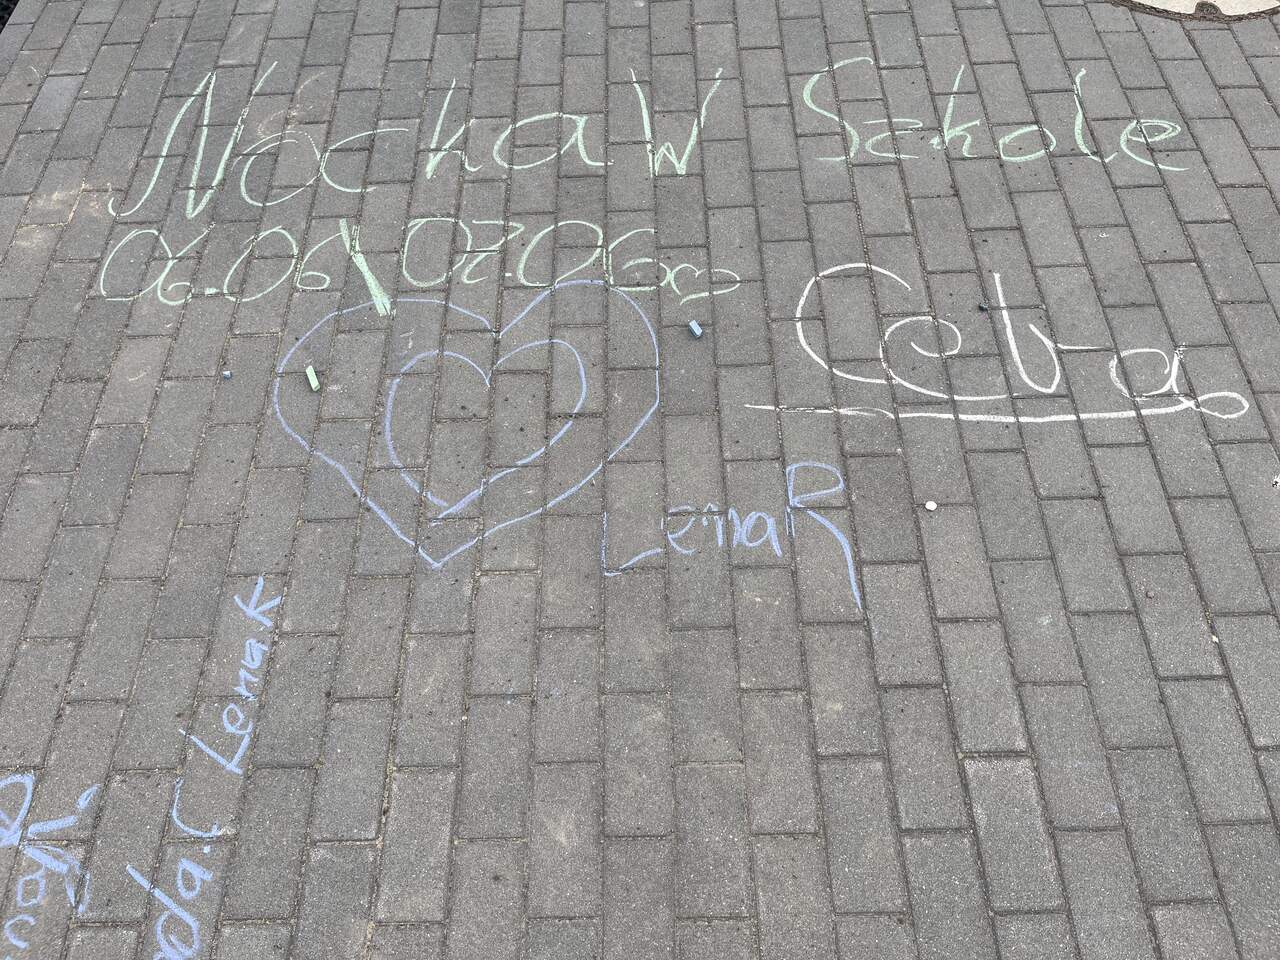 Nocka W Szkole
06.06\07.06
Ceba
Lena R
Lena K